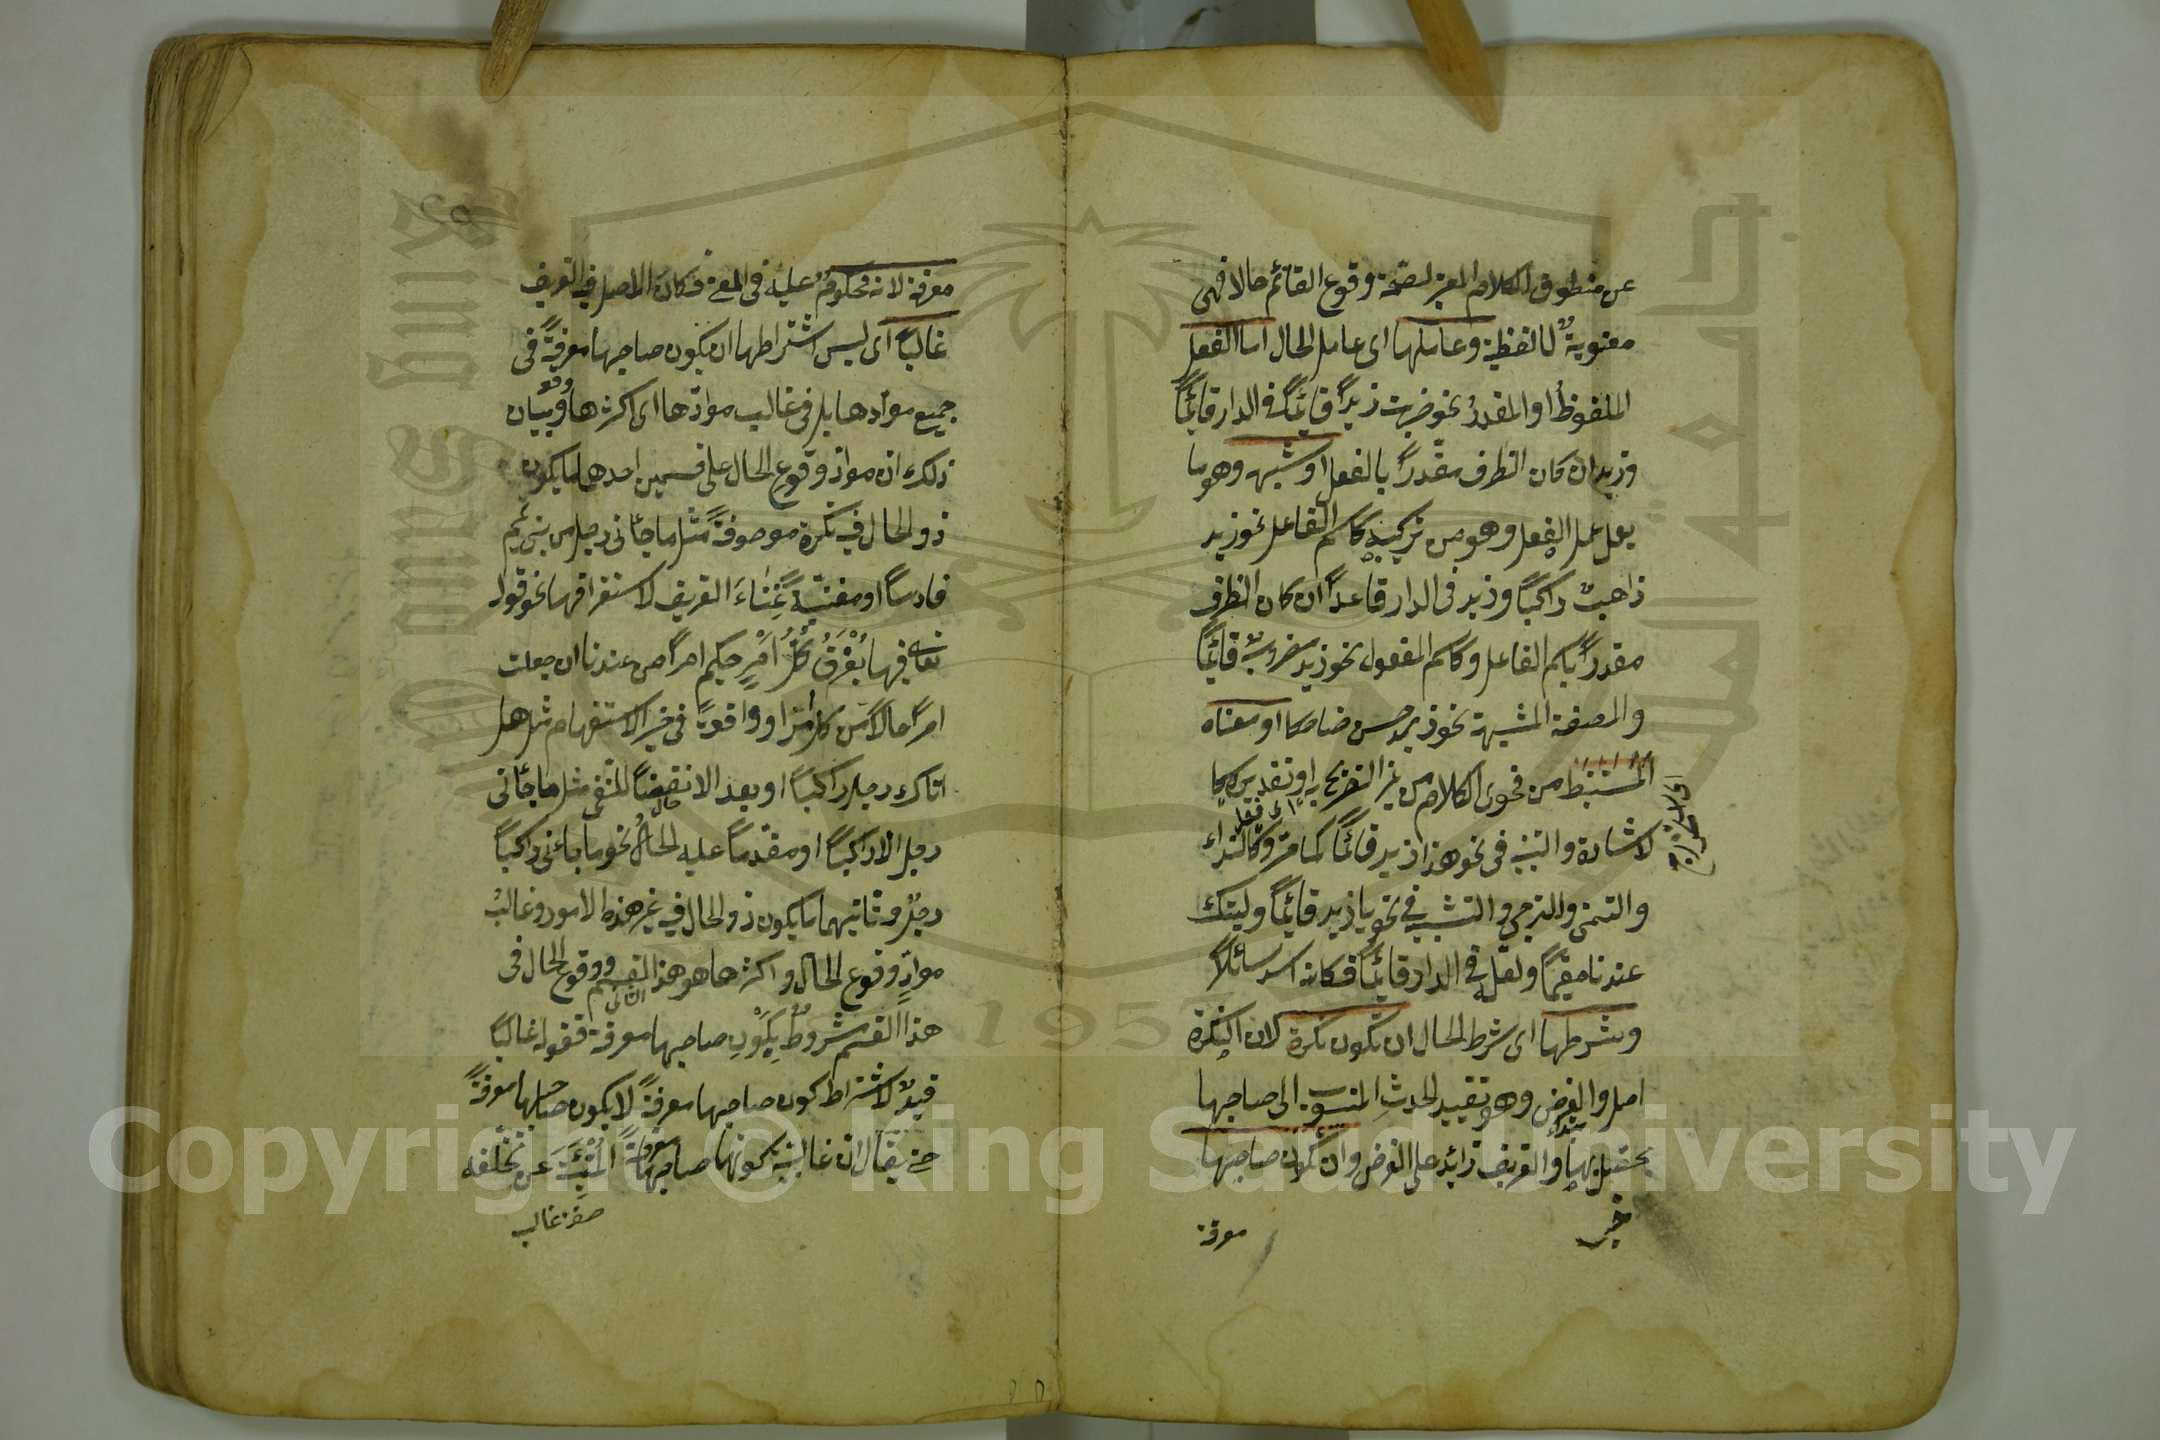 عن منطوق الكلام المعبر لصحة وقوع القائم حالا فهى
معنوية لا لفظية وعاملها اى عامل الحال اما الفعل
الملفوظ او المقدر نحو ضربت زيدا قائما فى الدار قائما
وزيد ان كان الظرف مقدرا بالفعل او شبهه وهو ما
يعمل عمل الفعل وهو من تركيبه كاسم الفاعل نحو زيد
ذاهبٌ راكبًا وزيد فى الدار قاعدًا ان كان الظرف
مقدرا باسم الفاعل وكاسم المفعول نحو زيد مضروب قائمًا
والصفة المشبهة نحو زيد حسن ضاحكا او معناه
المستنبط من فحوى الكلام من غير التصريح به او تقديره كا
لاشارة والتنبيه فى نحو هذا زيد قائمًا كما مر وكالنداء
والتمنى والترجى والتشبيه فى نحو يا زيد قائمًا وليتك
عندنا مقيمًا ولعله فى الدار قائمًا وكانه اسد صائلاً
وشرطها اى شرط الحال ان تكون نكرة لان النكرة
اصل والغرض وهو تقييد الحدث المنسوب الى صاحبها
يحصل بها والتعريف زائد على الغرض وان يكون صاحبها
مبتداء
خبر
معرفة
معرفة لانه محكوم عليه فى المعنى فكان الاصل فيه التعريف
غالبًا اى ليس اشتراطها ان يكون صاحبها معرفةً فى
جميع موادها بل فى غالب موادها اى اكثرها وبيان
ذلك ان مواد وقوع الحال على قسمين احدهما ما يكون
ذو الحال فيه نكرة موصوفةً مثل ما جائنى رجل من بنى تميم
فارسا او مغنيةً غَناءَ التعريف لاستغراقها نحو قوله
تعالى فيها يُفْرَقُ كُلُّ اَمْرٍ حكيم امرًا من عندنا ان جعلت
امرًا حالا من كل امر او واقعةً فى حيز الاستفهام مثل هل
اتاك رجل راكبًا او بعد الا نقضًا للنفى مثل ما جائنى
رجل الا راكبًا او مقدما عليه الحالُ نحو ما جاءنى راكبًا
رجلٌ وثانيهما ما يكون ذو الحال فيه غير هذه الامور وغالبُ
موادِ وقوع الحال واكثرها هو هذا القسم ووقوع الحال فى
الثانى
هذا القسم شروطٌ بِكَوْنِ صاحبها معرفة فقوله غالبًا
قيدٌ لاشتراط كون صاحبها معرفةً لا لكون صاحبها معرفةً
حتى يقال ان غالبية كونها صاحبها معرفةً المُنْبِئَةَ عن تخلفه
صفة غالب